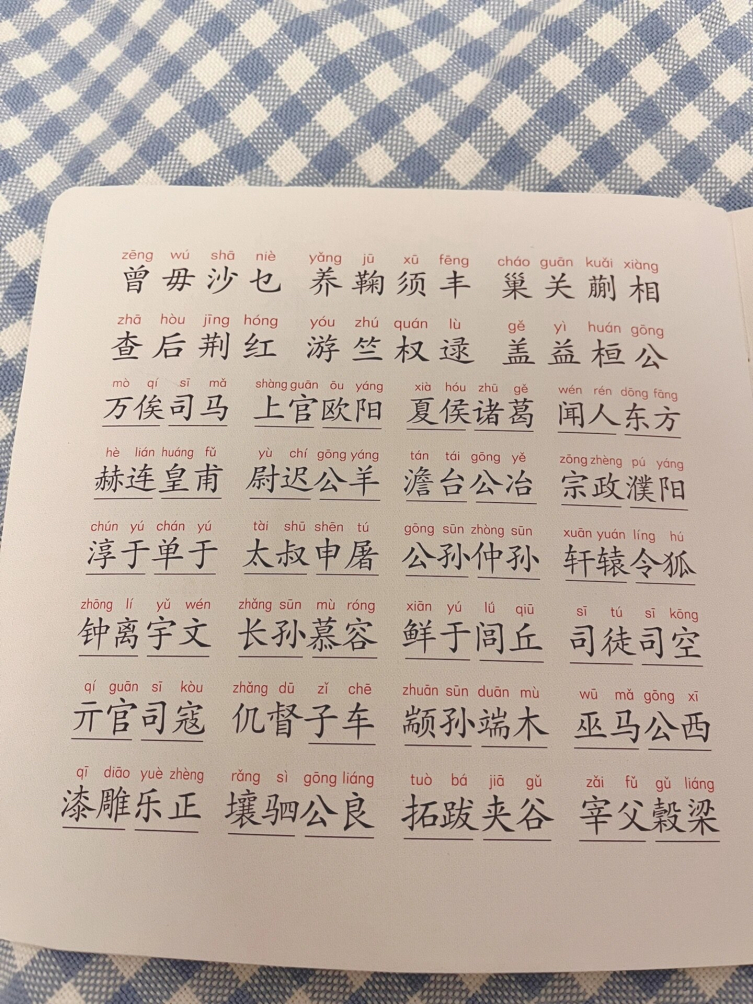 zēng wú shā niè yǎng jū xū fēng cháo guān kuǎi xiàng
曾毋沙乜 养鞠须丰 巢关蒯相
zhā hòu jīng hóng yóu zhú quán lù gě yì huán gōng
查后荆红 游竺权逯 盖益桓公
mò qí sī mǎ shàng guān ōu yáng xià hóu zhū gě wén rén dōng fāng
万俟司马 上官欧阳 夏侯诸葛 闻人东方
hè lián huáng fǔ yù chí gōng yáng tán tái gōng yě zōng zhèng pú yáng
赫连皇甫 尉迟公羊 澹台公冶 宗政濮阳
chún yú chán yú tài shū shēn tú gōng sūn zhòng sūn xuān yuán líng hú
淳于单于 太叔申屠 公孙仲孙 轩辕令狐
zhōng lí yǔ wén zhǎng sūn mù róng xiān yú lǘ qiū sī tú sī kōng
钟离宇文 长孙慕容 鲜于闾丘 司徒司空
qí guān sī kòu zhǎng dū zǐ chē zhuān sūn duān mù wū mǎ gōng xī
亓官司寇 仉督子车 颛孙端木 巫马公西
qī diāo yuè zhèng rǎng sì gōng liáng tuò bá jiā gǔ zǎi fǔ gǔ liáng
漆雕乐正 壤驷公良 拓跋夹谷 宰父榖梁